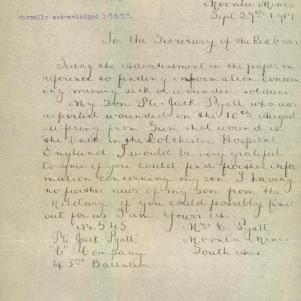 Formally acknowledged
Moonta Mines
Sept 27th 1917
To the Secretary of the Red Cross
Seeing the Advertisement in the paper in
reference to finding information concern
ing missing sick or wounded soldiers
My Son Pte Jack Pyatt who was
reported wounded on the 10th August
suffering from Gun shot wound in
the back in the Colchester Hospital
England I would be very grateful
to you if you could find further infor
mation concerning my son I having
no further news of my son from the
Military if you could possibly find
out for us I am Yours etc.
No 545
Mrs E. Pyatt
Pte Jack Pyatt
Moonta Mines
"C" Company
South Aus
43rd Battalion